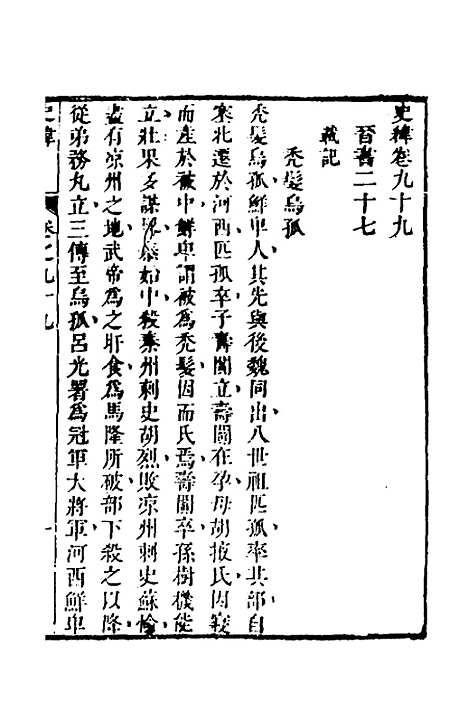 史緯卷九十九
晉書二十七
載記
禿髮烏孤
禿髮烏孤鮮卑人其先與後魏同出八世祖匹孤率其部自
塞北遷於河西匹孤卒子壽闐立壽闐在孕母胡掖氏因寢
而產於被中鮮卑謂被為禿髮因而氏焉壽闐卒孫樹機能
立壯果多謀畧泰始中殺秦州刺史胡烈敗涼州刺史蘇愉
盡有涼州之地武帝為之旰食為馬隆所破部下殺之以降
從弟務丸立三傳至烏孤呂光署為冠軍大將軍河西鮮卑
史緯 卷之九十九 一